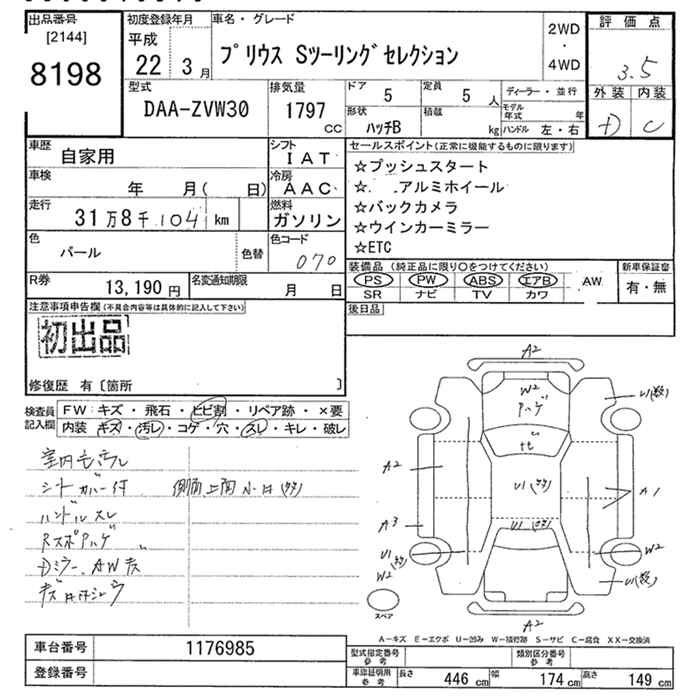 出品番号
[2144]
8198
初度登録年月
平成
22 3月
車名・グレード
プリウス Sツーリングセレクション
2WD
・
4WD
評価点
3.5
外装 内装
D C
型式
DAA-ZVW30
排気量
1797
CC
ドア
5
定員
5 人
形状
ハッチB
積載
kg
ディーラー・並行
モデル年式 年
ハンドル 左・右
車歴
自家用
シフト
IAT
車検
年 月( 日)
冷房
AAC
走行
31万8千104 km
燃料
ガソリン
色
パール
色替
色コード
070
R券
13,190円
名変通知期限
月 日
セールスポイント(正常に機能するものに限ります)
☆プッシュスタート
☆. .アルミホイール
☆バックカメラ
☆ウインカーミラー
☆ETC
装備品(純正品に限り○をつけてください)
PS PW ABS エアB AW
SR ナビ TV カワ
新車保証書
有・無
後日品
注意事項申告欄(不具合内容等は具体的に記入して下さい)
初出品
修復歴 有〔箇所 〕
検査員記入欄
FW:キズ・飛石・ヒビ割・リペア跡・×要
内装 キズ・汚レ・コゲ・穴・スレ・キレ・破レ
シートカバー付
ハンドルスレ
A2
W2
U1
A2
A1
A3
U1
W2
U1
U1
W2
A2
スペア
A-キズ E-エクボ U-凹み W-補修跡 S-サビ C-腐食 XX-交換済
車台番号
1176985
登録番号
型式指定番号
参考
類別区分番号
参考
車庫証明用
参考
長さ 446 cm 幅 174 cm 高さ 149 cm